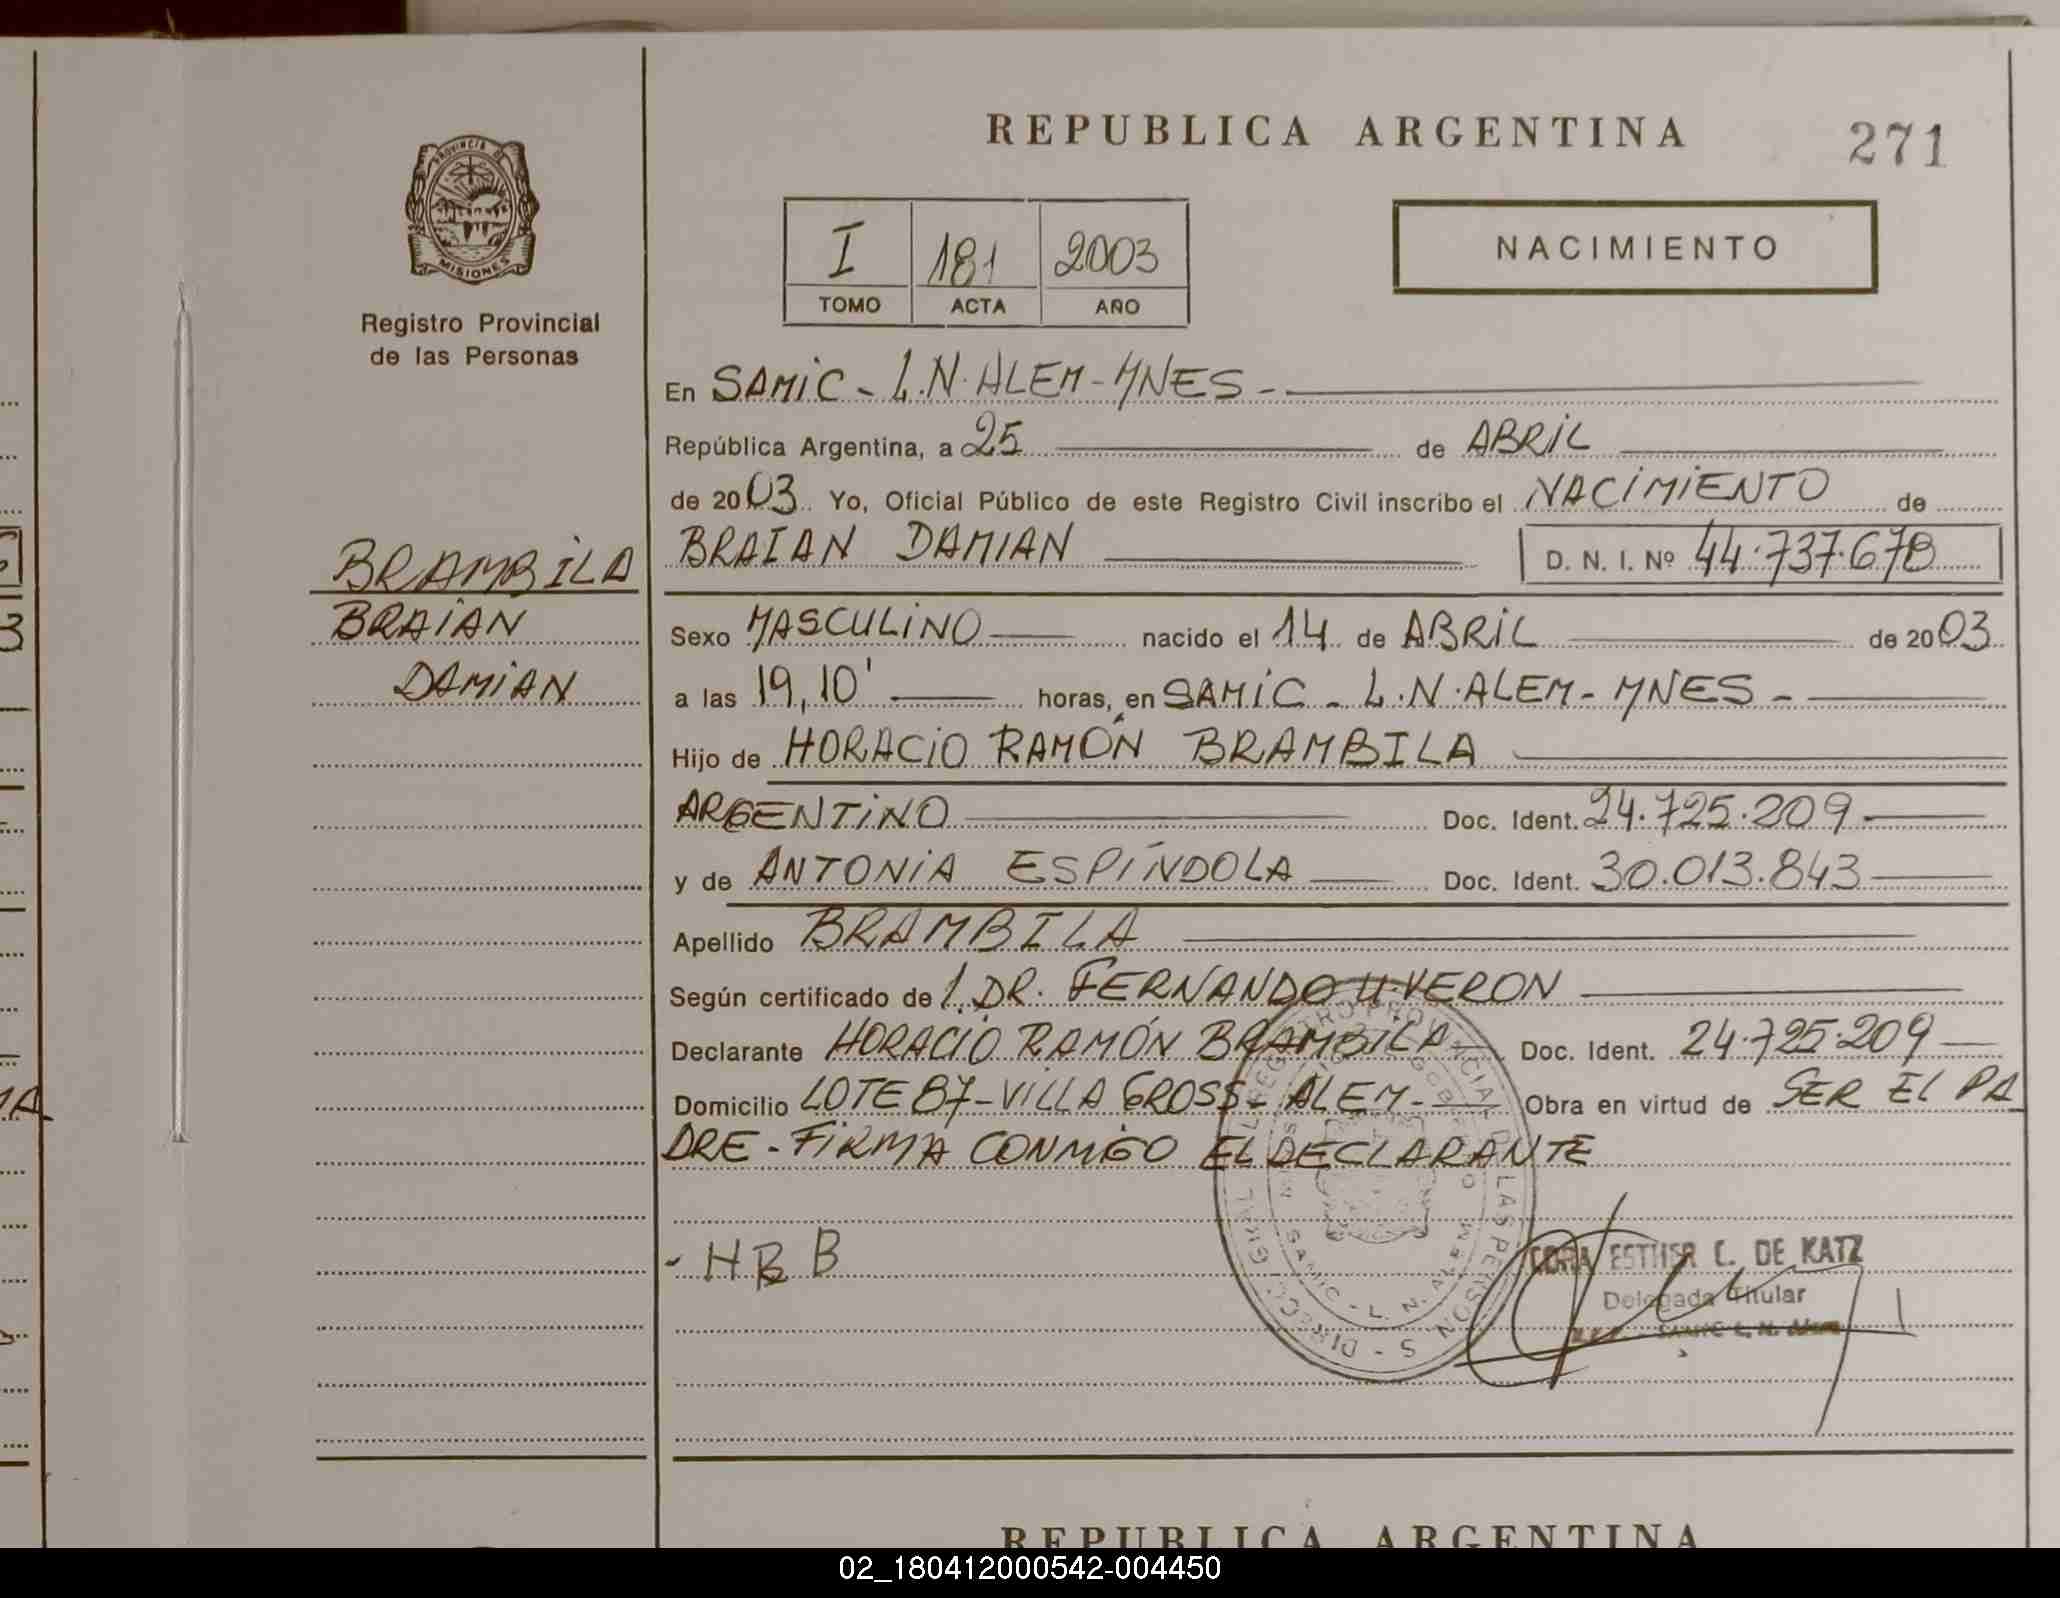 REPUBLICA ARGENTINA
271
PROVINCIA DE
MISIONES
Registro Provincial
de las Personas
I 181 2003
TOMO ACTA AÑO
NACIMIENTO
En SAMIC - L.N. ALEM - MNES -
República Argentina, a 25 de ABRIL
de 2003 Yo, Oficial Público de este Registro Civil inscribo el NACIMIENTO de
BRAIAN DAMIAN D. N. I. Nº 44.737.678
BRAMBILA
BRAIAN
DAMIAN
Sexo MASCULINO nacido el 14 de ABRIL de 2003
a las 19,10' horas, en SAMIC - L.N. ALEM - MNES -
Hijo de HORACIO RAMÓN BRAMBILA
ARGENTINO Doc. Ident. 24.725.209
y de ANTONIA ESPÍNDOLA Doc. Ident. 30.013.843
Apellido BRAMBILA
Según certificado de DR. FERNANDO U. VERON
Declarante HORACIO RAMÓN BRAMBILA Doc. Ident. 24.725.209
Domicilio LOTE 87 - VILLA GROSS - ALEM - Obra en virtud de SER EL PA
DRE - FIRMA CONMIGO EL DECLARANTE
- H B B
SAMIC - L. N. ALEM
CORA ESTHER C. DE KATZ
Delegada Titular
SAMIC L. N. Alem
REPUBLICA ARGENTINA
02_180412000542-004450